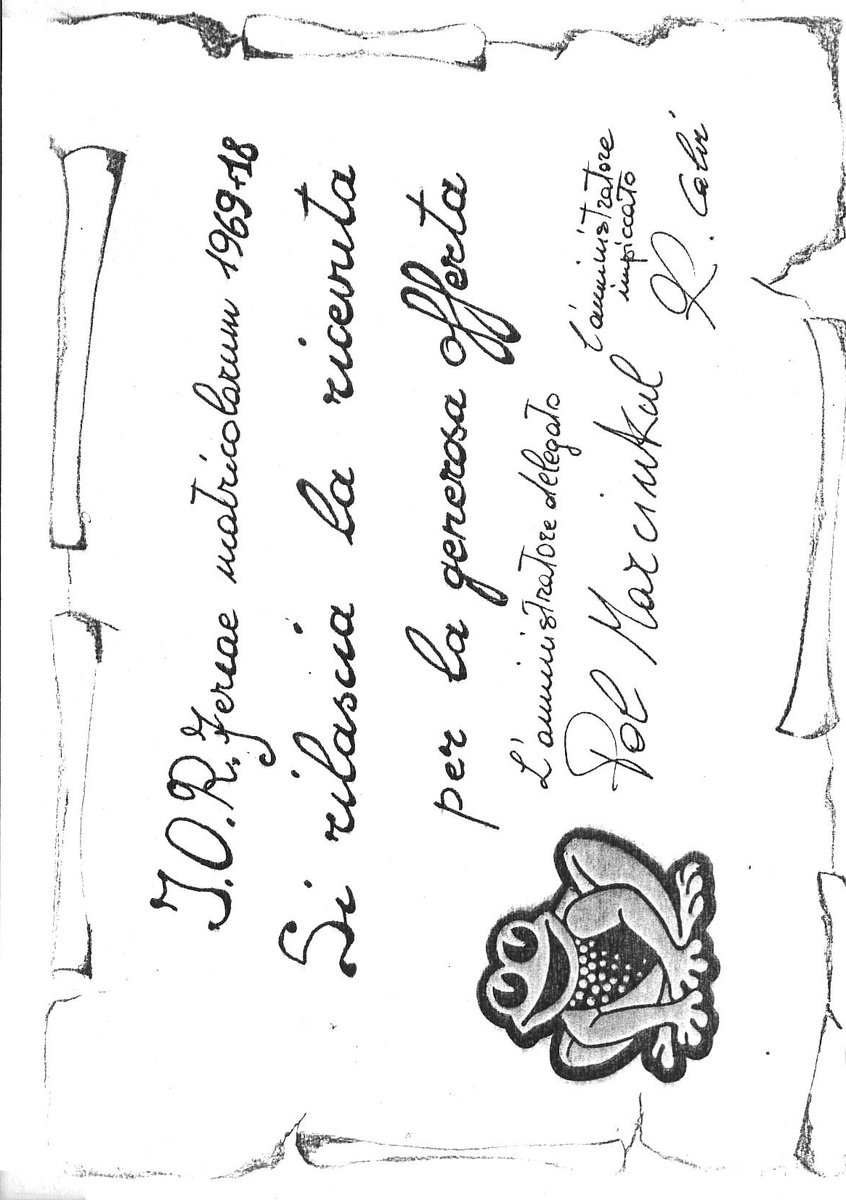 I.O.R. Feriae matricolarum 1969+18
Si rilascia la ricevuta
per la generosa offerta
L'amministratore delegato
Pol Marcinkul
L'amministratore
impiccato
R. Calvi